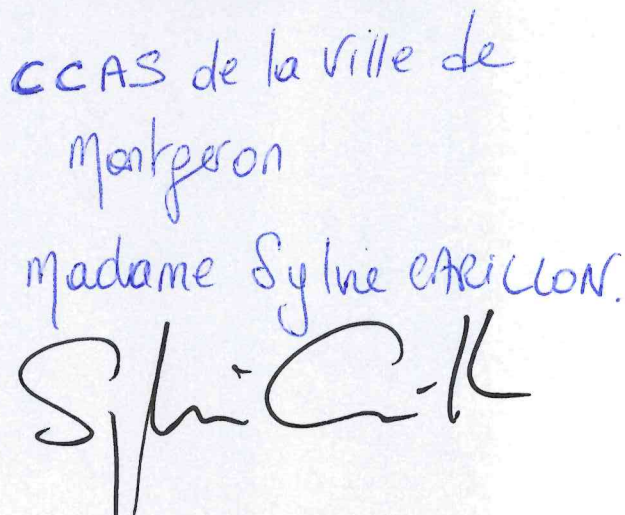 CCAS de la Ville de
Montgeron
Madame Sylvie CARILLON.